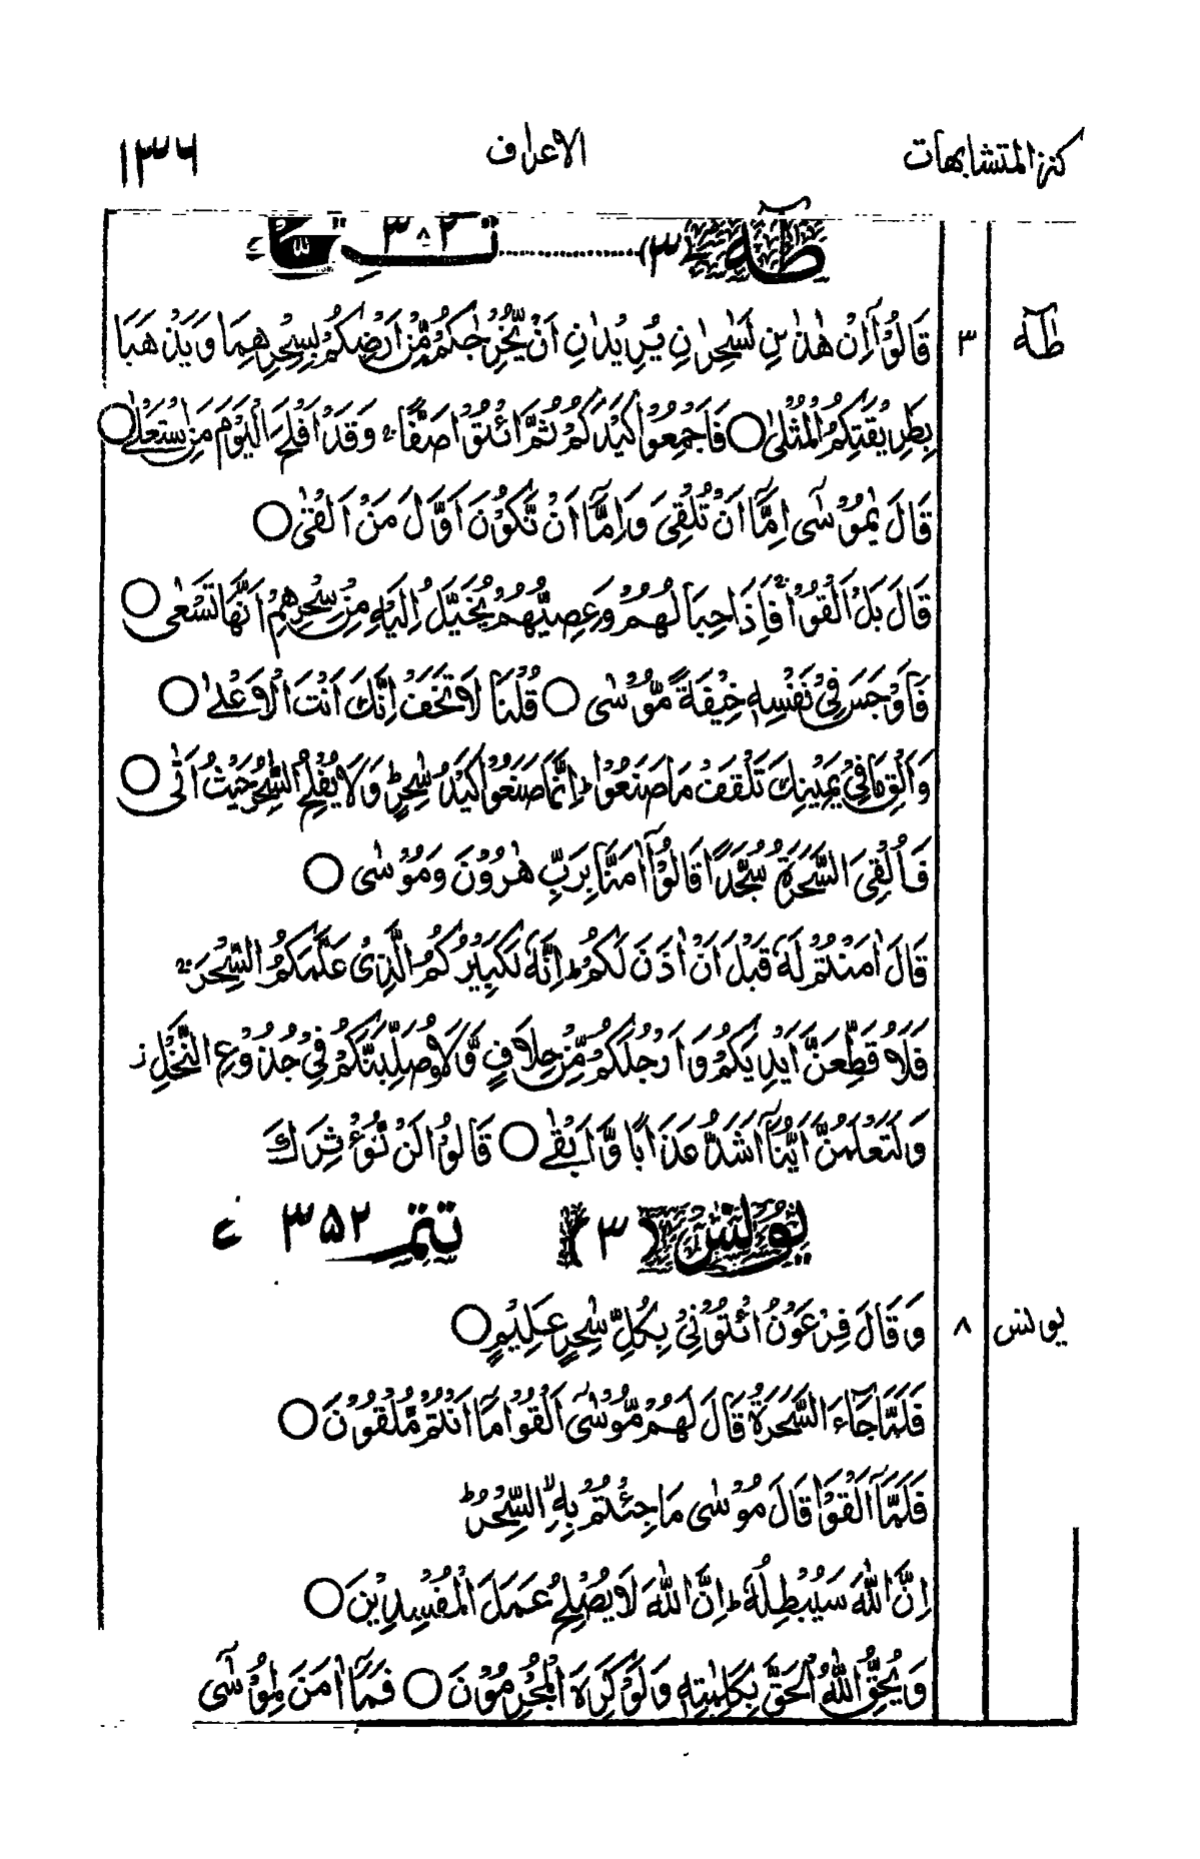 كنز المتشابهات الاعراف ۱۳۶
طٰهٰ (۳) ۳۸۲
طٰهٰ ۳ قَالُوْٓا اِنْ هٰذٰىنِ لَسٰحِرٰنِ يُرِيْدٰنِ اَنْ يُّخْرِجٰكُمْ مِّنْ اَرْضِكُمْ بِسِحْرِهِمَا وَيَذْهَبَا
بِطَرِيْقَتِكُمُ الْمُثْلٰى ○ فَاَجْمِعُوْا كَيْدَكُمْ ثُمَّ ائْتُوْا صَفًّا ۚ وَقَدْ اَفْلَحَ الْيَوْمَ مَنِ اسْتَعْلٰى ○
قَالُوْا يٰمُوْسٰٓى اِمَّآ اَنْ تُلْقِىَ وَاِمَّآ اَنْ نَّكُوْنَ اَوَّلَ مَنْ اَلْقٰى ○
قَالَ بَلْ اَلْقُوْا ۚ فَاِذَا حِبَالُهُمْ وَعِصِيُّهُمْ يُخَيَّلُ اِلَيْهِ مِنْ سِحْرِهِمْ اَنَّهَا تَسْعٰى ○
فَاَوْجَسَ فِىْ نَفْسِهٖ خِيْفَةً مُّوْسٰى ○ قُلْنَا لَا تَخَفْ اِنَّكَ اَنْتَ الْاَعْلٰى ○
وَاَلْقِ مَا فِىْ يَمِيْنِكَ تَلْقَفْ مَا صَنَعُوْا ؕ اِنَّمَا صَنَعُوْا كَيْدُ سٰحِرٍ ؕ وَلَا يُفْلِحُ السّٰحِرُ حَيْثُ اَتٰى ○
فَاُلْقِىَ السَّحَرَةُ سُجَّدًا قَالُوْٓا اٰمَنَّا بِرَبِّ هٰرُوْنَ وَمُوْسٰى ○
قَالَ اٰمَنْتُمْ لَهٗ قَبْلَ اَنْ اٰذَنَ لَكُمْ ؕ اِنَّهٗ لَكَبِيْرُكُمُ الَّذِىْ عَلَّمَكُمُ السِّحْرَ ۚ
فَلَاُقَطِّعَنَّ اَيْدِيَكُمْ وَاَرْجُلَكُمْ مِّنْ خِلَافٍ وَّلَاُوصَلِّبَنَّكُمْ فِىْ جُذُوْعِ النَّخْلِ ز
وَلَتَعْلَمُنَّ اَيُّنَآ اَشَدُّ عَذَابًا وَّاَبْقٰى ○ قَالُوْا لَنْ نُّؤْثِرَكَ
يونس (۳) تتمہ ۳۵۲ ع
يونس ۸ وَقَالَ فِرْعَوْنُ ائْتُوْنِىْ بِكُلِّ سٰحِرٍ عَلِيْمٍ ○
فَلَمَّا جَآءَ السَّحَرَةُ قَالَ لَهُمْ مُّوْسٰٓى اَلْقُوْا مَآ اَنْتُمْ مُّلْقُوْنَ ○
فَلَمَّآ اَلْقَوْا قَالَ مُوْسٰى مَا جِئْتُمْ بِهِ ۙ السِّحْرُ ؕ
اِنَّ اللّٰهَ سَيُبْطِلُهٗ ؕ اِنَّ اللّٰهَ لَا يُصْلِحُ عَمَلَ الْمُفْسِدِيْنَ ○
وَيُحِقُّ اللّٰهُ الْحَقَّ بِكَلِمٰتِهٖ وَلَوْ كَرِهَ الْمُجْرِمُوْنَ ○ فَمَآ اٰمَنَ لِمُوْسٰٓى